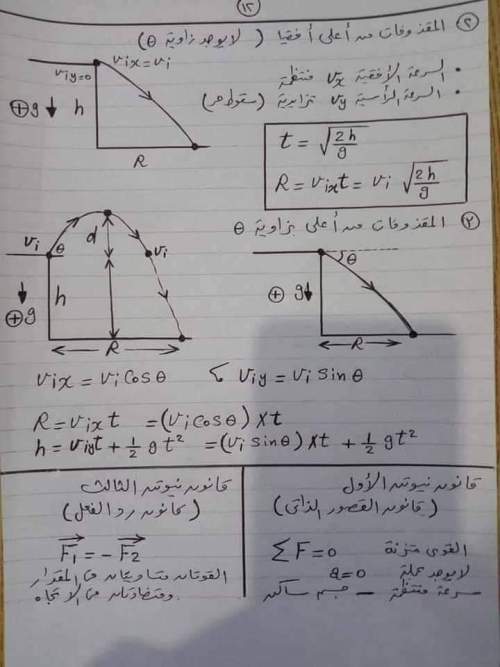 ١٥
② المقذوفات من أعلى أفقيا ( لا يوجد زاوية θ )
viy=0
vix=vi
+g
h
R
• السرعة الأفقية vx منتظمة
• السرعة الرأسية vy تزايدية (سقوط حر)
t = √(2h/g)
R = vix t = vi √(2h/g)
② المقذوفات من أعلى بزاوية θ
vi
θ
d
vi
+g
h
R
θ
+ g
R
vix = vi Cosθ
viy = vi sinθ
R = vix t = (vi Cosθ) Xt
h = viy t + 1/2 g t² = (vi sinθ) Xt + 1/2 gt²
قانون نيوتن الأول
(قانون القصور الذاتى)
القوى متزنة ΣF=0
لا يوجد عجلة a=0
سرعة منتظمة – جسم ساكن
قانون نيوتن الثالث
(قانون رد الفعل)
F₁ = – F₂
القوتان متساويتان فى المقدار
ومتضادتان فى الاتجاه